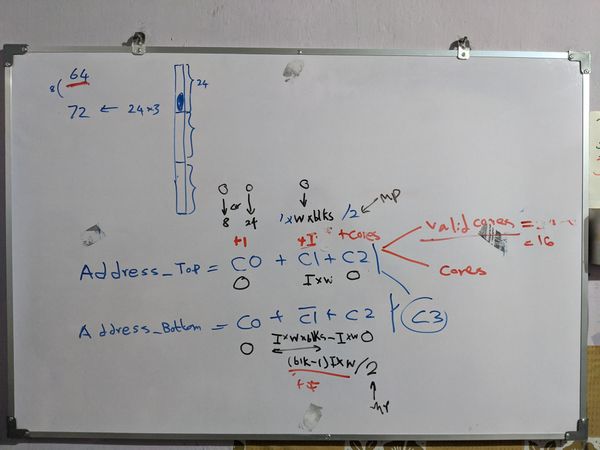 64
8(
24
72 ← 24×3
0 0 0
↓ or ↓ ↓
8 24 1×W×blks /2 ← MP
+1 +I + cores
valid cores =
= 16
Address_Top = C0 + C1 + C2
cores
0 I×W 0
C3
Address_Bottom = C0 + C̅1 + C2
0 I×W×blks - I×W 0
(blk-1) I×W /2
+ I